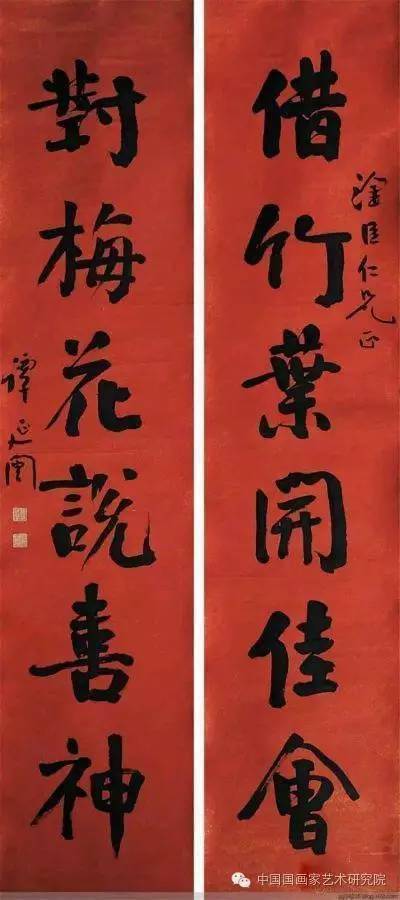 淦臣仁兄正
借竹葉開佳會
對梅花說喜神
譚延闓
中国国画家艺术研究院